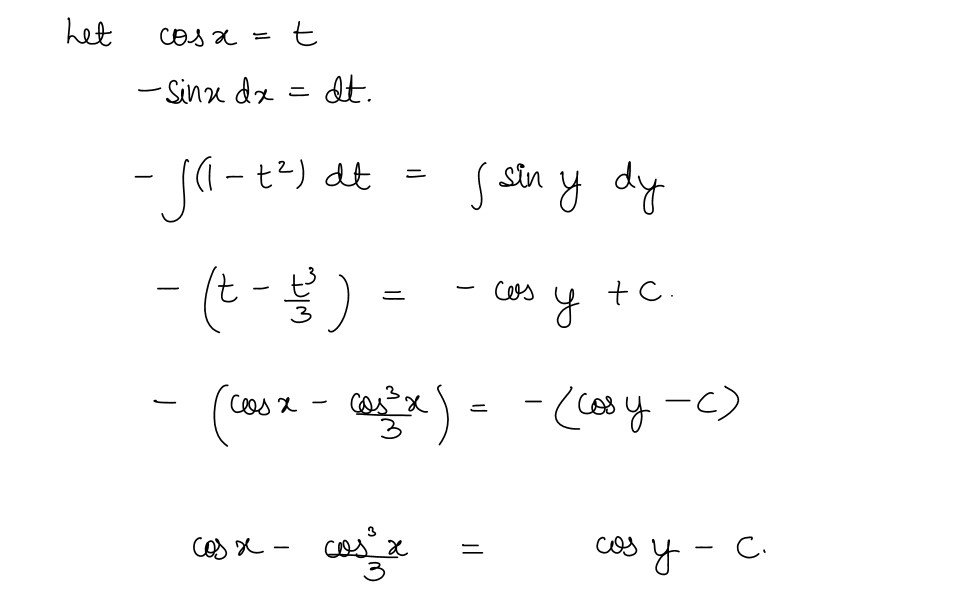 Let cos x = t
- sin x dx = dt.
- ∫(1 - t²) dt = ∫ sin y dy
- (t - t³/3) = - cos y + c.
- (cos x - cos³x/3) = - (cos y - c)
cos x - cos³x/3 = cos y - c.